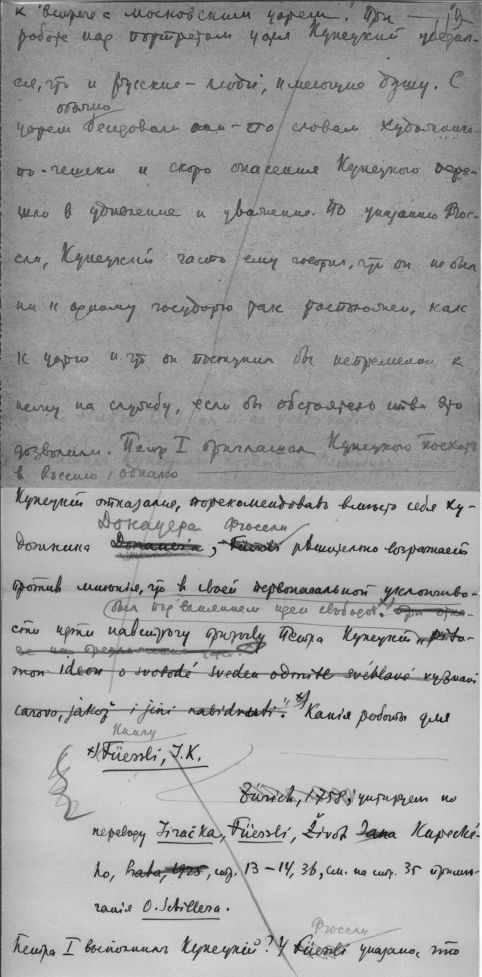 к "встрече с московским царем". При
работе над портретом царя Купецкий убедил-
ся, что и русские – люди, имеющие душу. С
обычно
царем беседовали они – по словам художника
по-чешски и скоро опасения Купецкого пере-
шло в удивление и уважение. По указанию Фюс-
сли, Купецкий часто ему говорил, что он не был
ни к одному государю так расположен, как
к царю и что он поступил бы непременно к
нему на службу, если бы обстоятельства это
дозволили. Петр I приглашал Купецкого поехать
в Россию, однако
Купецкий отказался, порекомендовав вместо себя ху-
Донауера Фюссли
дожника , Füessli решительно возражает
против мнения, что в своей первоначальной уклончиво-
был под влиянием идеи свободы".
сти идти навстречу призыву Петра Купецкий
mon ideou o svobodě sveden odmítl
carovo, jakož i jiní nabídnutí." *) Какия работы для
Книгу
*) Füessli, J.K.
Zürich, 1758, цитируем по
переводу Jiračka, Füessli, Život Jana Kupecké-
ho, Praha, 1925, стр. 13–14, 36, см. на стр. 35 приме-
чания O. Schillera.
Фюссли
Петра I выполнил Купецкий? У Füessli указано, что